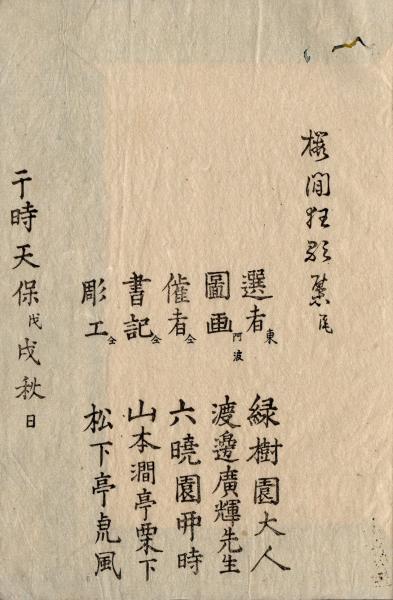 櫻間狂歌集尾
選者 東 緑樹園大人
圖画 阿波 渡邊廣輝先生
催者 仝 六曉園丣時
書記 仝 山本澗亭栗下
彫工 仝 松下亭虎風
于時天保戊戌秋日